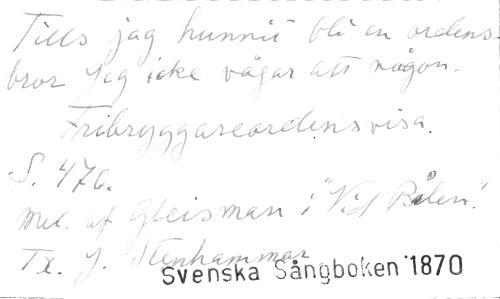 Tills jag hunnit bli en ordens-
bror jag icke vågar att någon.
Fribryggareordensvisa.
S. 476.
Mel. af Gleisman i "Vid Bålen".
Tx. J. Stenhammar
Svenska Sångboken 1870